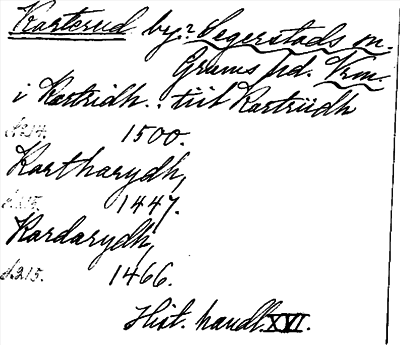 Karterud by? Segerstads sn.
Grums hd. Vrm.
i Kartridh. tiil Kartriidh
s. 214. 1500.
Kartharydh,
s. 215. 1447.
Kardarydh,
s. 215. 1466.
Hist. handl. XVI.